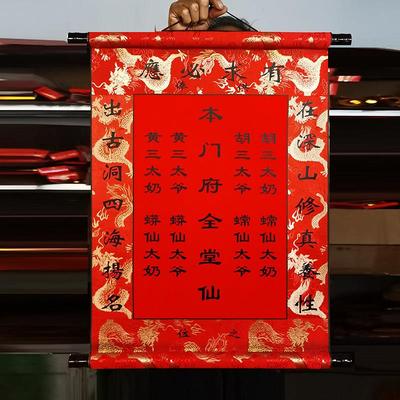 有求必應
在深山修真養性
胡三太奶 蟐仙太奶
胡三太爷 蟐仙太爷
本门府全堂仙
黄三太爷 蟒仙太爷
黄三太奶 蟒仙太奶
出古洞四海揚名
之位